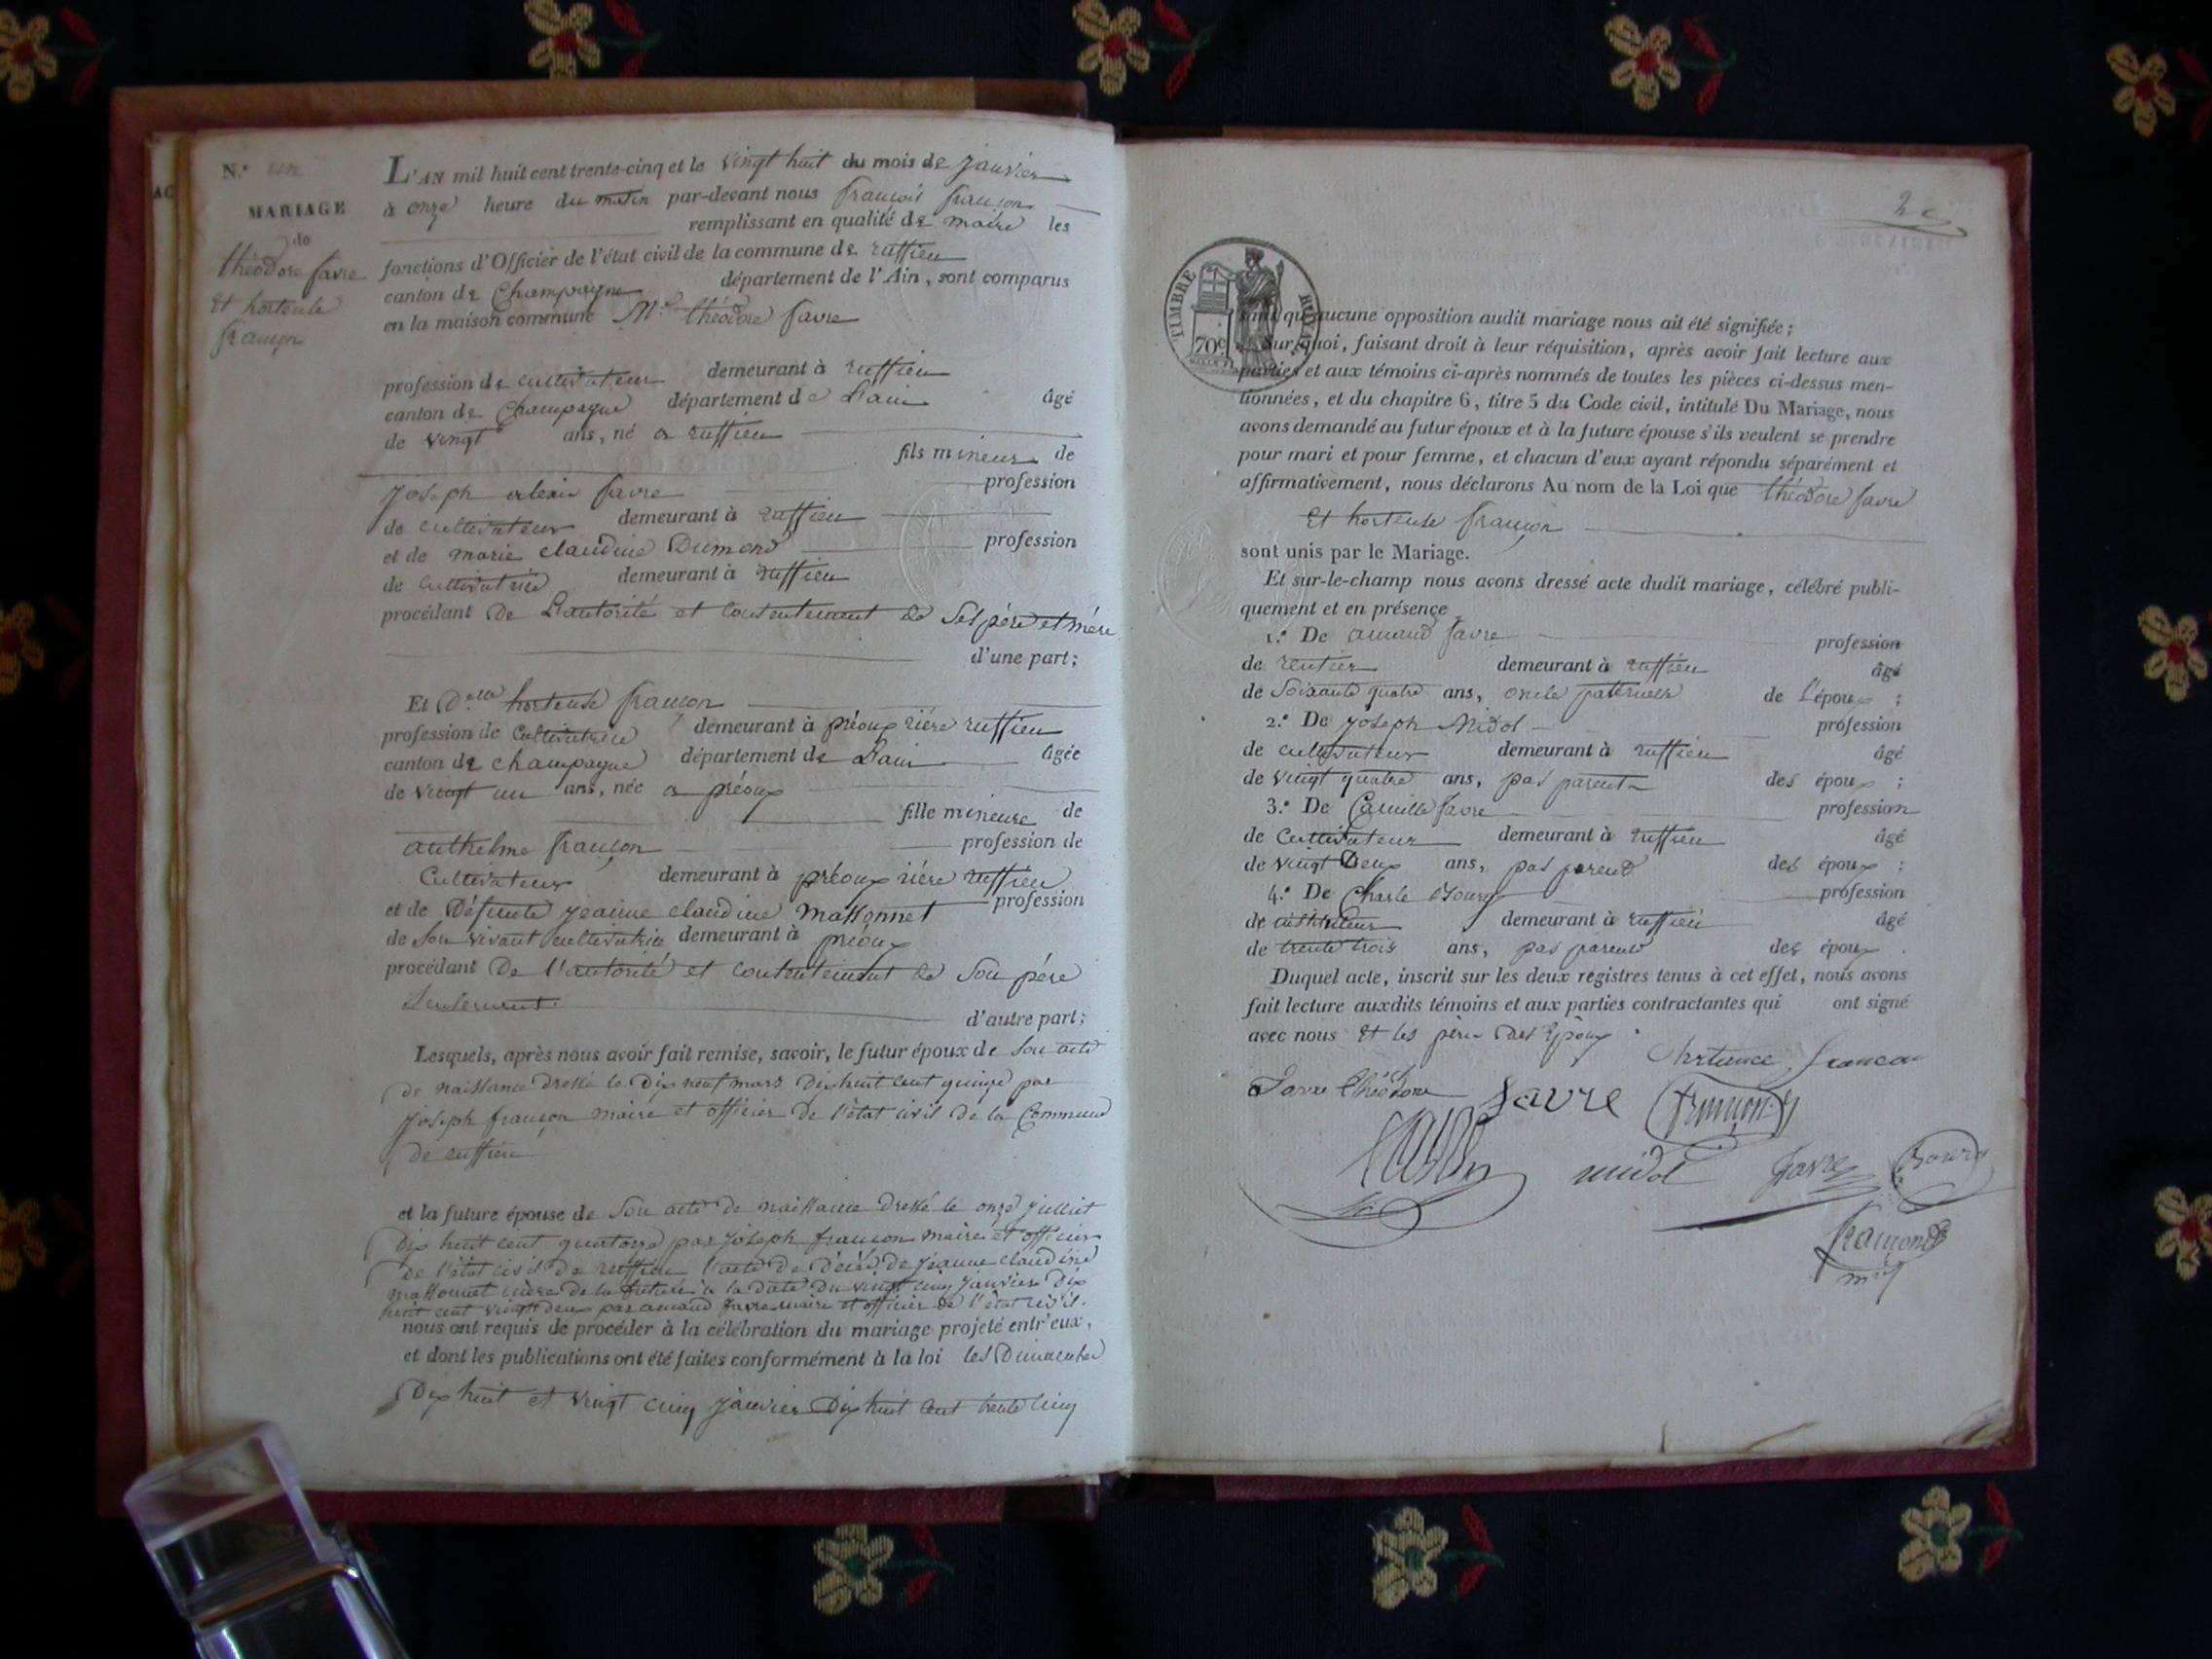 N.º un
MARIAGE
de
théodore favre
et hortense
françon
L'AN mil huit cent trente-cinq et le vingt huit du mois de janvier
à onze heure du matin par-devant nous françois françon
remplissant en qualité de maire les
fonctions d'Officier de l'état civil de la commune de ruffieu
canton de Champagne département de l'Ain, sont comparus
en la maison commune Mr théodore favre
profession de cultivateur demeurant à ruffieu
canton de Champagne département de L'ain âgé
de vingt ans, né a ruffieu
fils mineur de
Joseph alexis favre profession
de cultivateur demeurant à ruffieu
et de marie claudine Dumond profession
de cultivatrice demeurant à ruffieu
procédant De L'autorité et consentement de Ses père et mère
d'une part;
Et Delle hortense françon
profession de Cultivatrice demeurant à préoux rière ruffieu
canton de champagne département de L'ain âgée
de vingt un ans, née a préoux
fille mineure de
anthelme françon profession de
Cultivateur demeurant à préoux rière ruffieu
et de Défunte jeanne claudine massonnet profession
de Son vivant cultivatrice demeurant à préoux
procédant De l'autorité et consentement de Son père
Seulement
d'autre part;
Lesquels, après nous avoir fait remise, savoir, le futur époux de Son acte
de naissance dressé le Dix neuf mars Dix huit cent quinze par
joseph françon maire et officier de l'état civil de la Commune
de ruffieu
et la future épouse de Son acte de naissance dressé le onze juillet
Dix huit cent quatorze par joseph françon maire et officier
de l'état civil de ruffieu l'acte de Décès de jeanne claudine
massonnet mère de la future à la date du vingt cinq janvier Dix
huit cent vingt deux par amand favre maire et officier de l'état civil.
nous ont requis de procéder à la célébration du mariage projeté entr'eux,
et dont les publications ont été faites conformément à la loi les Dimanches
Dix huit et vingt cinq janvier Dix huit cent trente cinq
2
TIMBRE ROYAL
70c
sans qu'aucune opposition audit mariage nous ait été signifiée;
Sur quoi, faisant droit à leur réquisition, après avoir fait lecture aux
parties et aux témoins ci-après nommés de toutes les pièces ci-dessus men-
tionnées, et du chapitre 6, titre 5 du Code civil, intitulé Du Mariage, nous
avons demandé au futur époux et à la future épouse s'ils veulent se prendre
pour mari et pour femme, et chacun d'eux ayant répondu séparément et
affirmativement, nous déclarons Au nom de la Loi que théodore favre
et hortense françon
sont unis par le Mariage.
Et sur-le-champ nous avons dressé acte dudit mariage, célébré publi-
quement et en présence
1.º De amand favre profession
de rentier demeurant à ruffieu âgé
de Soixante quatre ans, oncle paternel de l'époux ;
2.º De joseph Midol profession
de cultivateur demeurant à ruffieu âgé
de vingt quatre ans, pas parent des époux ;
3.º De Camille favre profession
de Cultivateur demeurant à ruffieu âgé
de vingt Deux ans, pas parent des époux ;
4.º De Charle Bourg profession
de instituteur demeurant à ruffieu âgé
de trente trois ans, pas parent des époux .
Duquel acte, inscrit sur les deux registres tenus à cet effet, nous avons
fait lecture auxdits témoins et aux parties contractantes qui ont signé
avec nous et les père des époux .
hortence francon
Favre théodore favre françon
midol favre Bourg
françon